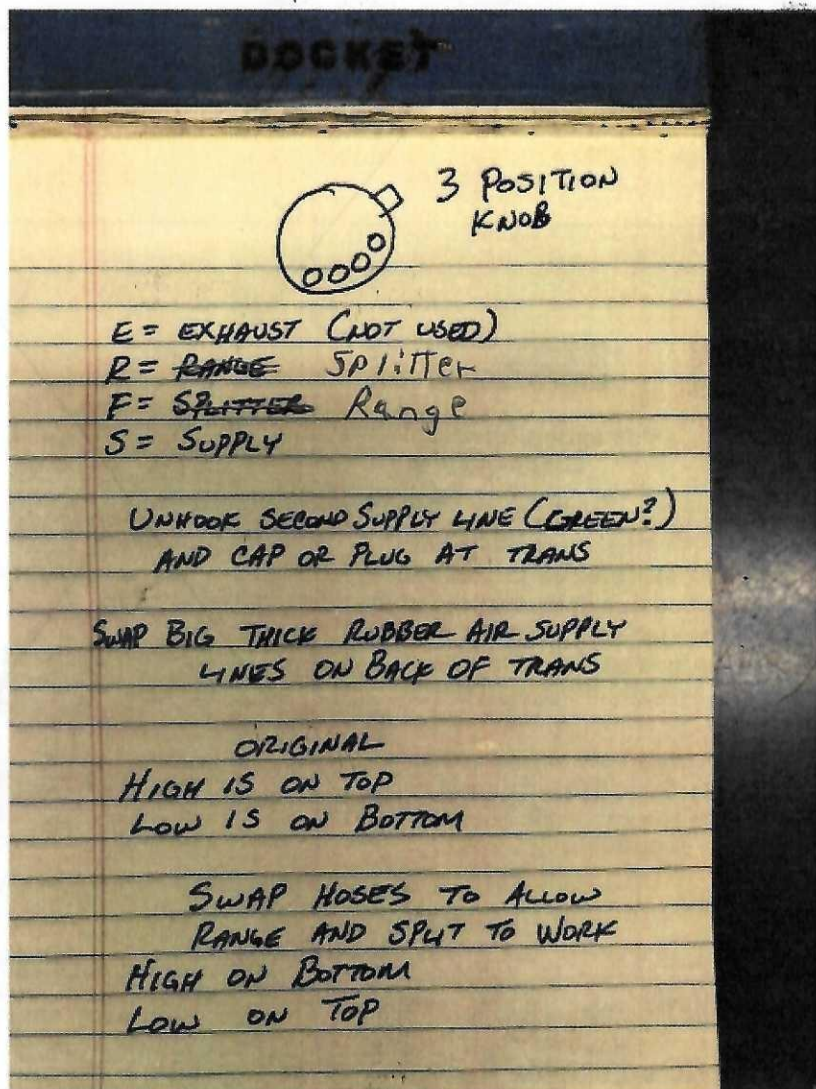 DOCKET™
3 POSITION
KNOB
E = EXHAUST (NOT USED)
R = RANGE Splitter
F = SPLITTER Range
S = SUPPLY
UNHOOK SECOND SUPPLY LINE (GREEN?)
AND CAP OR PLUG AT TRANS
SWAP BIG THICK RUBBER AIR SUPPLY
LINES ON BACK OF TRANS
ORIGINAL
HIGH IS ON TOP
LOW IS ON BOTTOM
SWAP HOSES TO ALLOW
RANGE AND SPLIT TO WORK
HIGH ON BOTTOM
LOW ON TOP